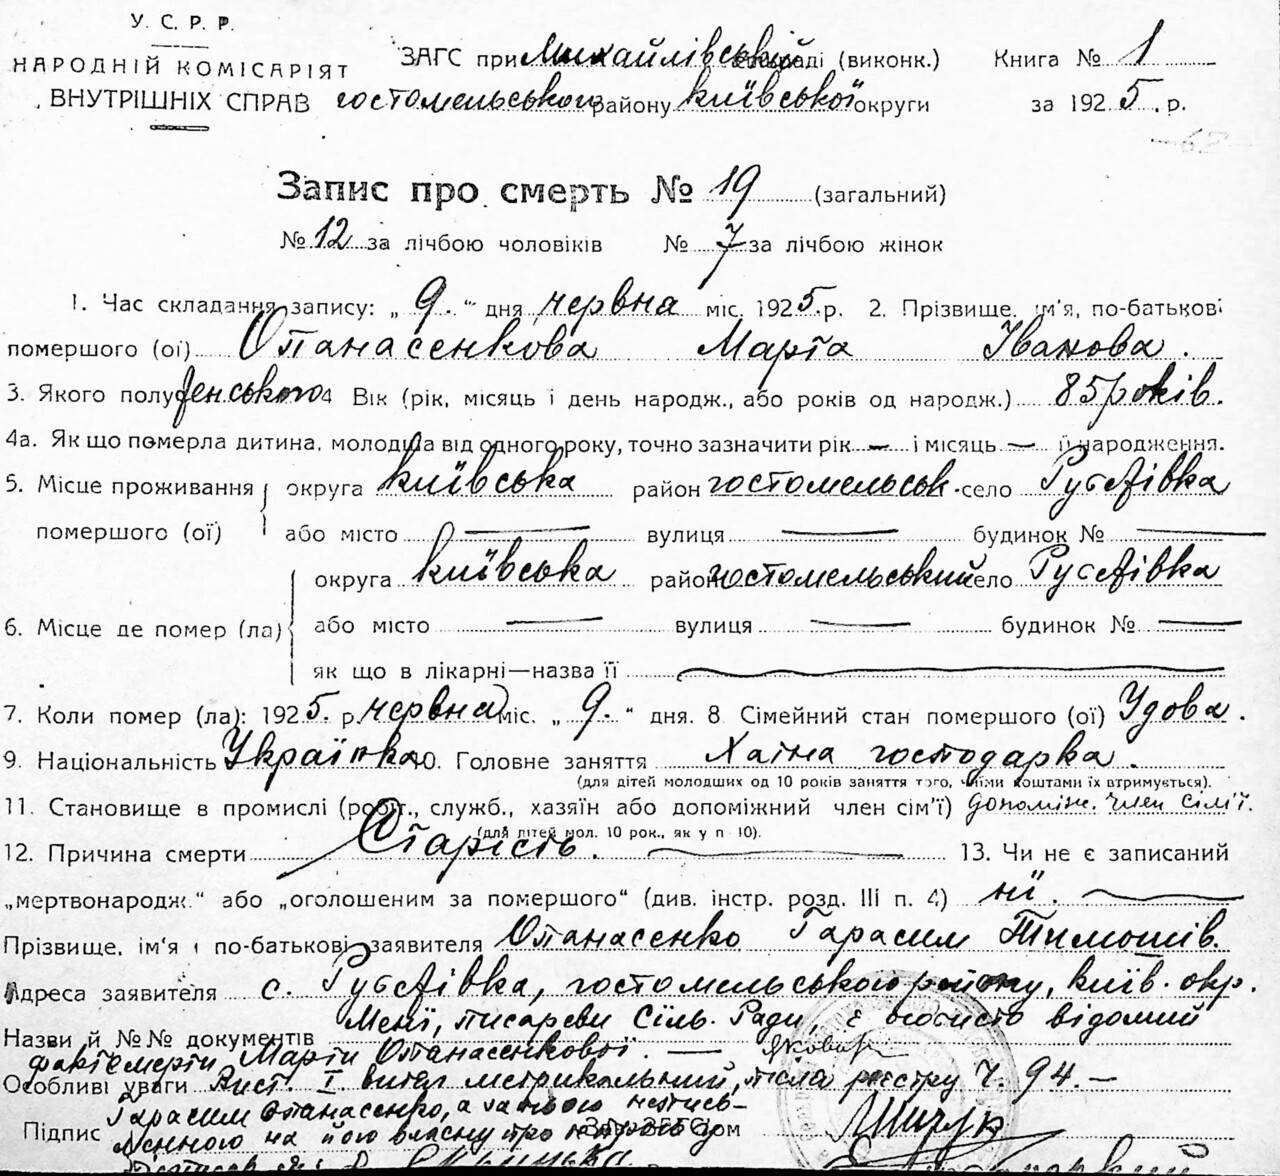 У. С. Р. Р.
НАРОДНІЙ КОМІСАРІЯТ
ВНУТРІШНІХ СПРАВ
ЗАГС при Михайлівській сільраді (виконк.) Книга № 1
гостомельського району київської округи за 1925. р.
62
Запис про смерть № 19 (загальний)
№ 12 за лічбою чоловіків № 7 за лічбою жінок
1. Час складання запису: „ 9. “ дня червня міс. 1925.р. 2. Прізвище, ім'я, по-батькові
помершого (ої) Опанасенкова Марта Іванова.
3. Якого полу женського 4 Вік (рік, місяць і день народж., або років од народж.) 85 років.
4а. Як що померла дитина, молодша від одного року, точно зазначити рік — і місяць — її народження.
5. Місце проживання округа київська район гостомельськ. село Рубежівка
помершого (ої) або місто — вулиця — будинок № —
округа київська район гостомельський село Рубежівка
6. Місце де помер (ла) або місто — вулиця — будинок № —
як що в лікарні—назва її
7. Коли помер (ла): 1925. р. червня міс. „ 9. “ дня. 8 Сімейний стан помершого (ої) Удова.
9. Національність Українка 10. Головне заняття Хатня господарка.
(для дітей молодших од 10 років заняття того, чиїми коштами їх втримується).
11. Становище в промислі (робіт., служб., хазяїн або допоміжний член сім'ї) допоміж. член сім'ї.
(для дітей мол. 10 рок., як у п 10).
12. Причина смерти Старість. — 13. Чи не є записаний
„мертвонародж.“ або „оголошеним за помершого“ (див. інстр. розд. III п. 4) ні.
Прізвище, ім'я і по-батькові заявителя Опанасенко Гарасим Тимошів.
Адреса заявителя с. Рубежівка, гостомельського району, київ. окр.
Назви й №№ документів Мені, писареві Сіль. Ради, є особисто відомий
факт смерти Марти Опанасенкової. —
Особливі уваги Вист. I витяг метрикальний, після реєстру Ч. 94. —
Гарасим Опанасенко, а за його неписьменного на його власну про
Підпис Зав. ЗАГС'ом